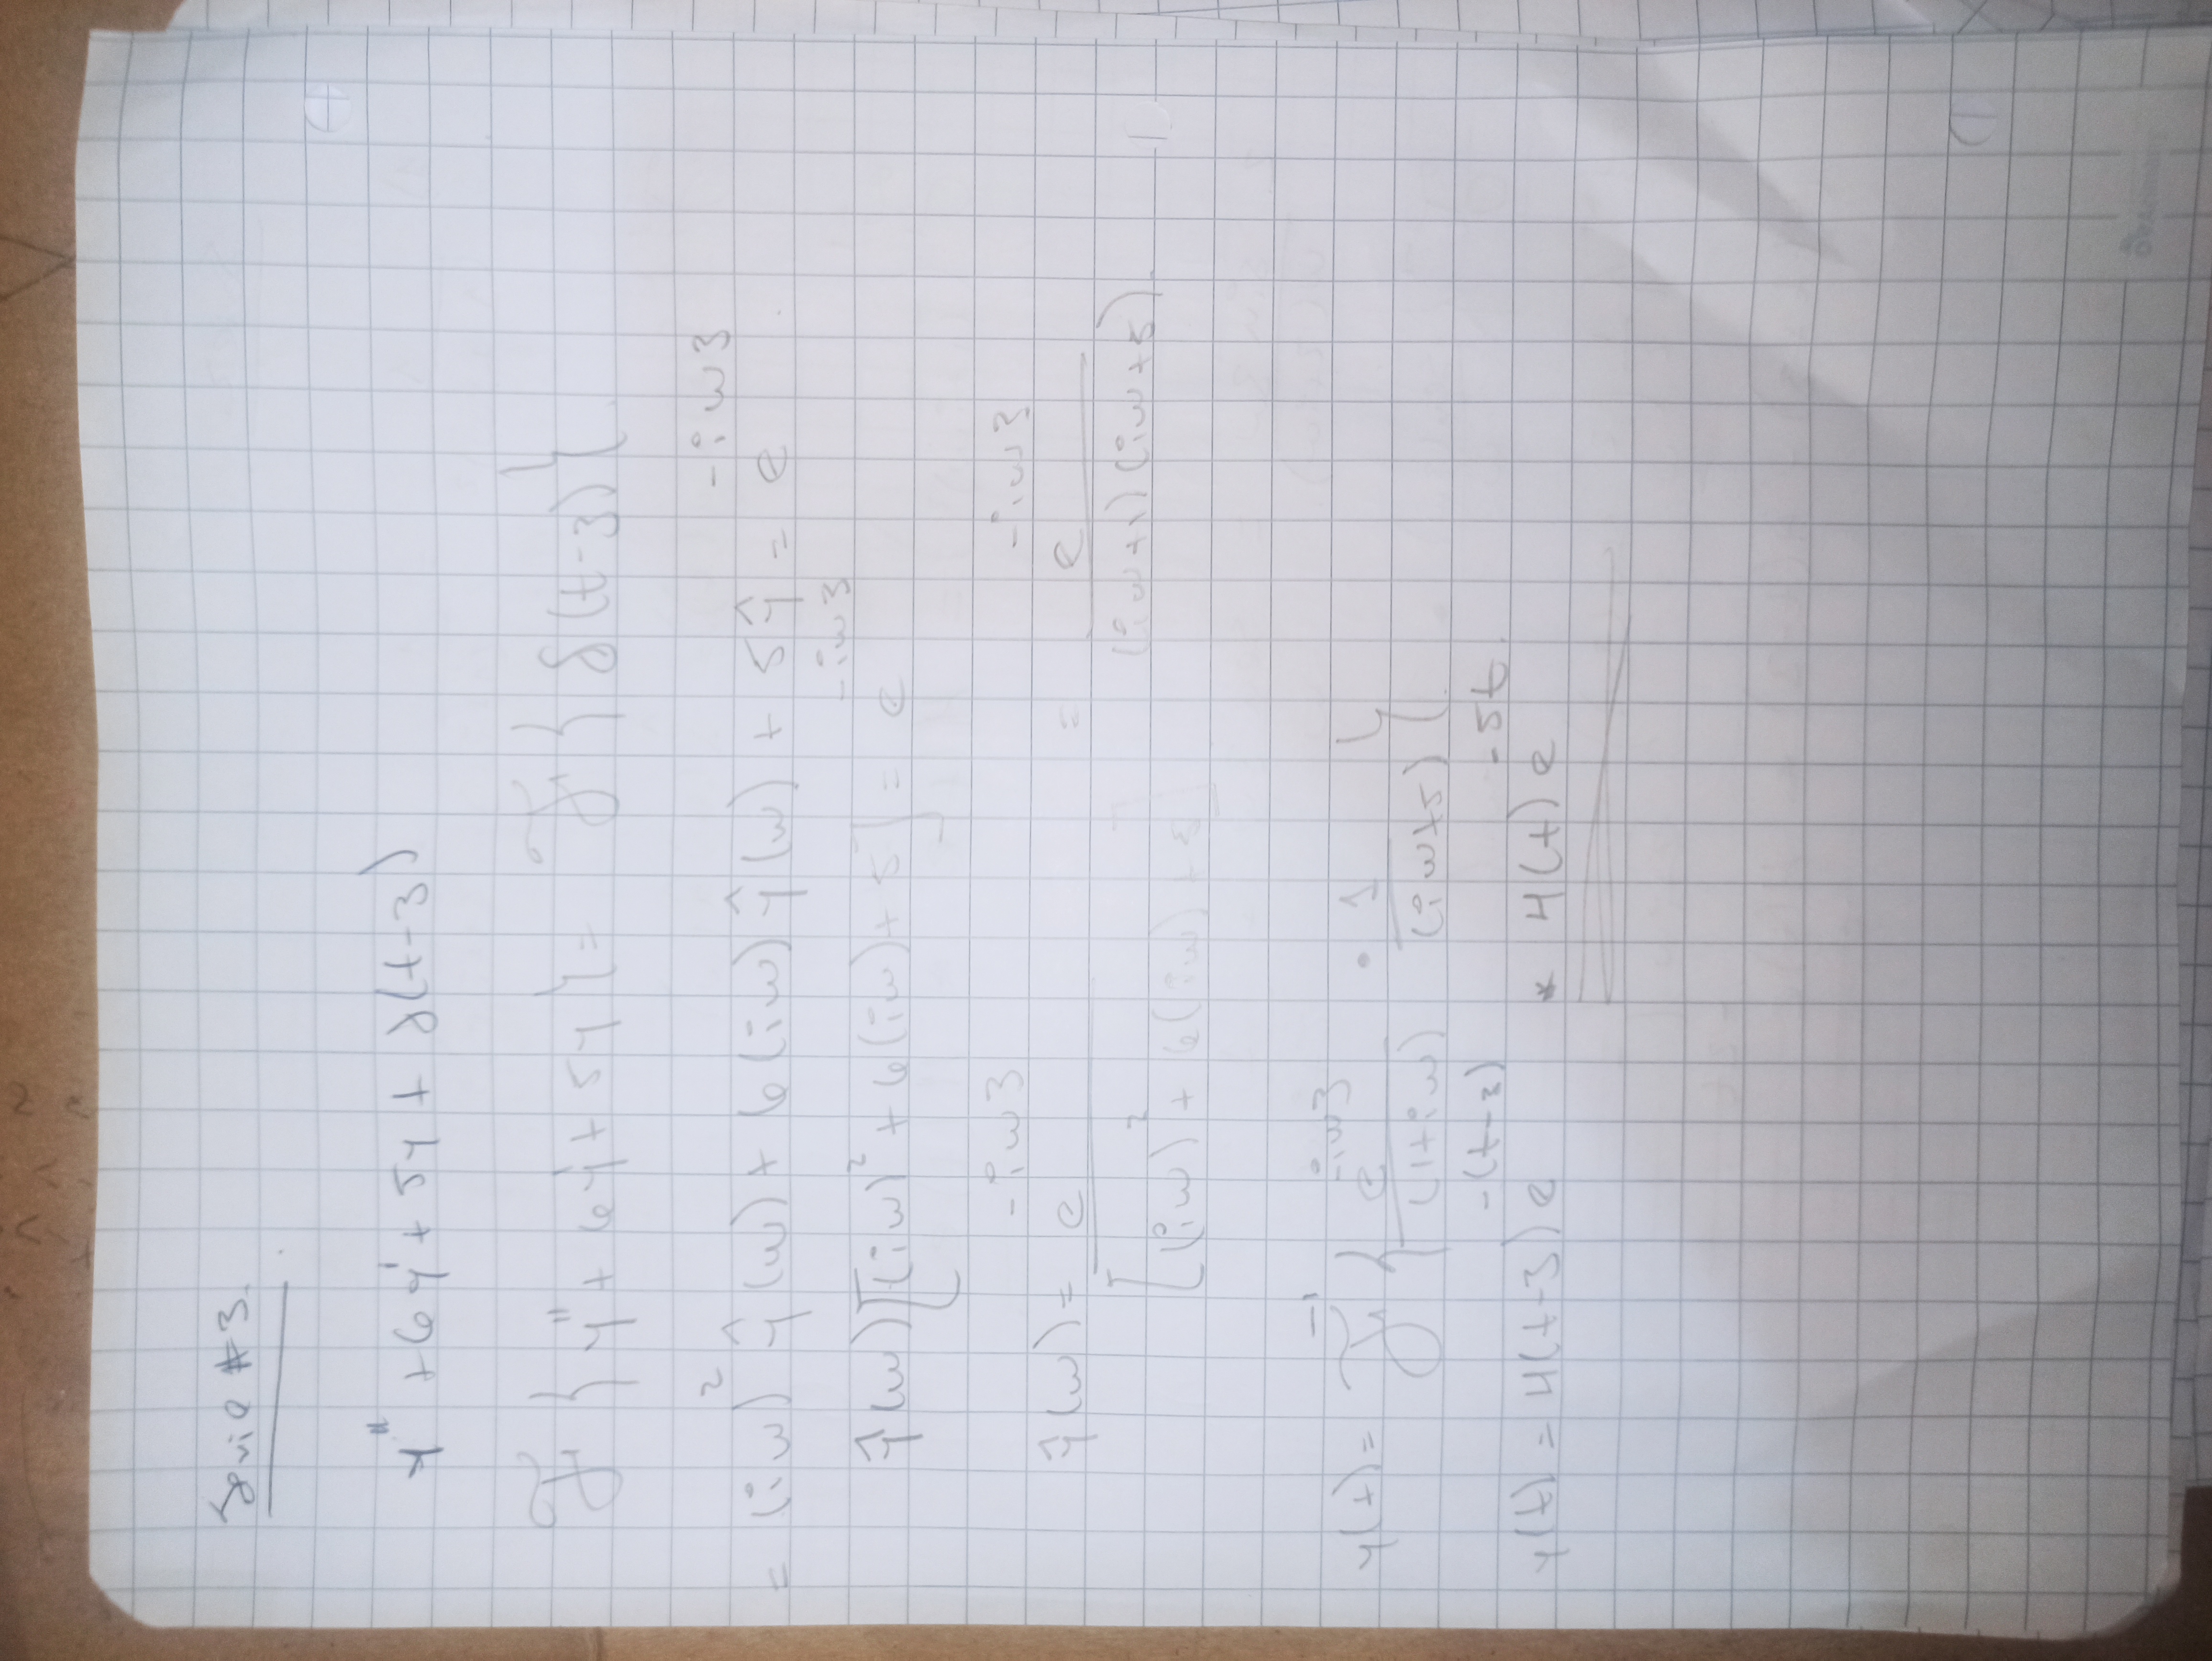 Serie #3.
y'' + 6y' + 5y + δ(t-3)
ℱ{y'' + 6y' + 5y} = ℱ{δ(t-3)}.
= (iω)² ŷ(ω) + 6(iω) ŷ(ω) + 5ŷ = e^{-iω3}.
ŷ(ω)[(iω)² + 6(iω) + 5] = e^{-iω3}
ŷ(ω) = e^{-iω3} / [(iω)² + 6(iω) + 5] = e^{-iω3} / (iω+1)(iω+5).
y(t) = ℱ^{-1}{e^{-iω3} / (1+iω) · 1 / (iω+5)}.
y(t) = H(t-3) e^{-(t-3)} * H(t) e^{-5t}.